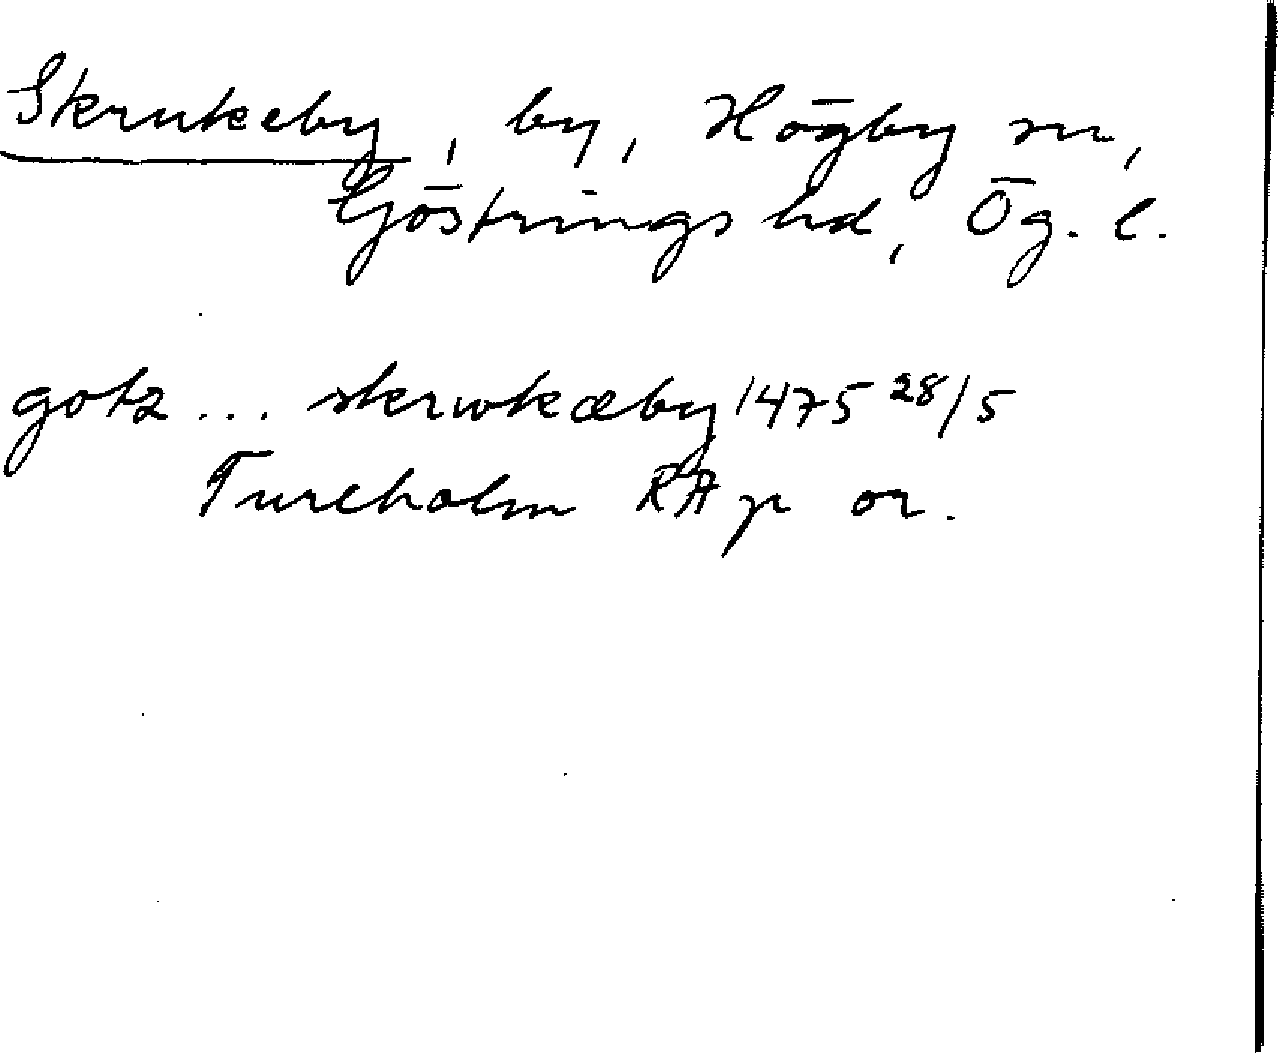 Skrukeby, by, Högby sn,
Göstrings hd, Ög. l.
gotz ... skrwkæby 1475 28/5
Tureholm RAp or.